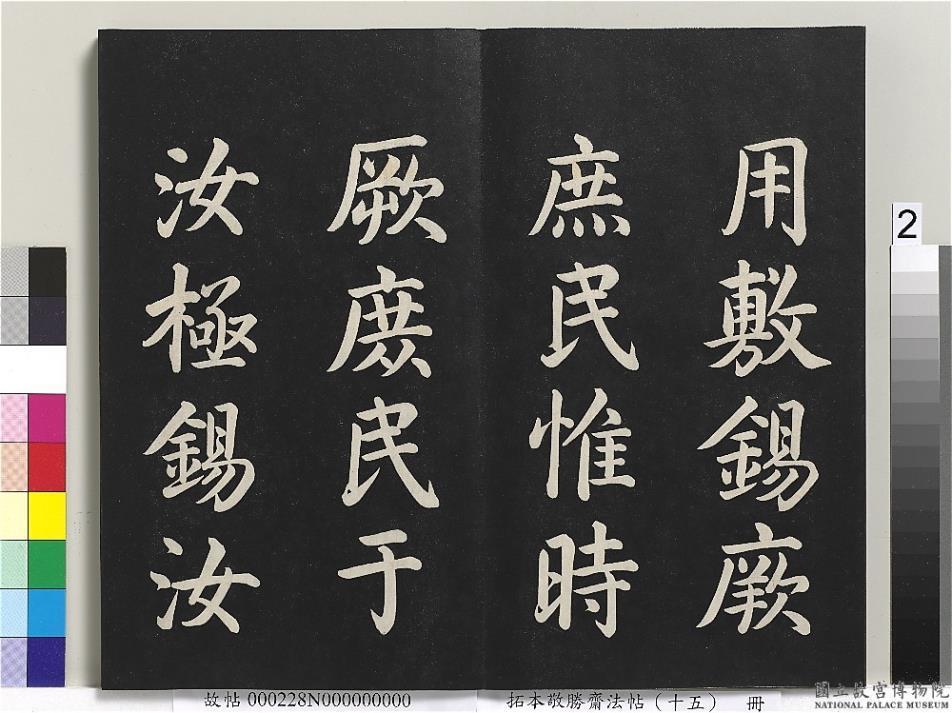 用敷錫厥
庶民惟時
厥庶民于
汝極錫汝
2
故帖 000228N000000000
拓本敬勝齋法帖（十五） 冊
國立故宮博物院
NATIONAL PALACE MUSEUM